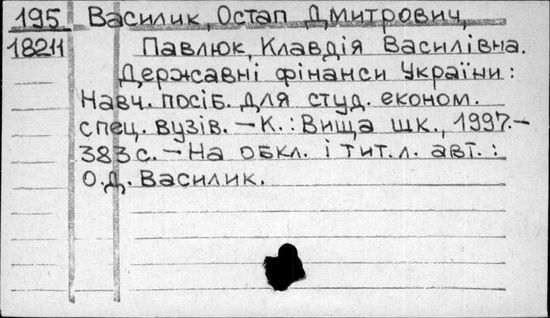 195 Василик, Остап Дмитрович,
18211 Павлюк, Клавдія Василівна.
Державні фінанси України:
Навч. посіб. для студ. економ.
спец. вузів. – К.: Вища шк., 1997. –
383 с. – На обкл. і тит. л. авт.:
О.Д. Василик.